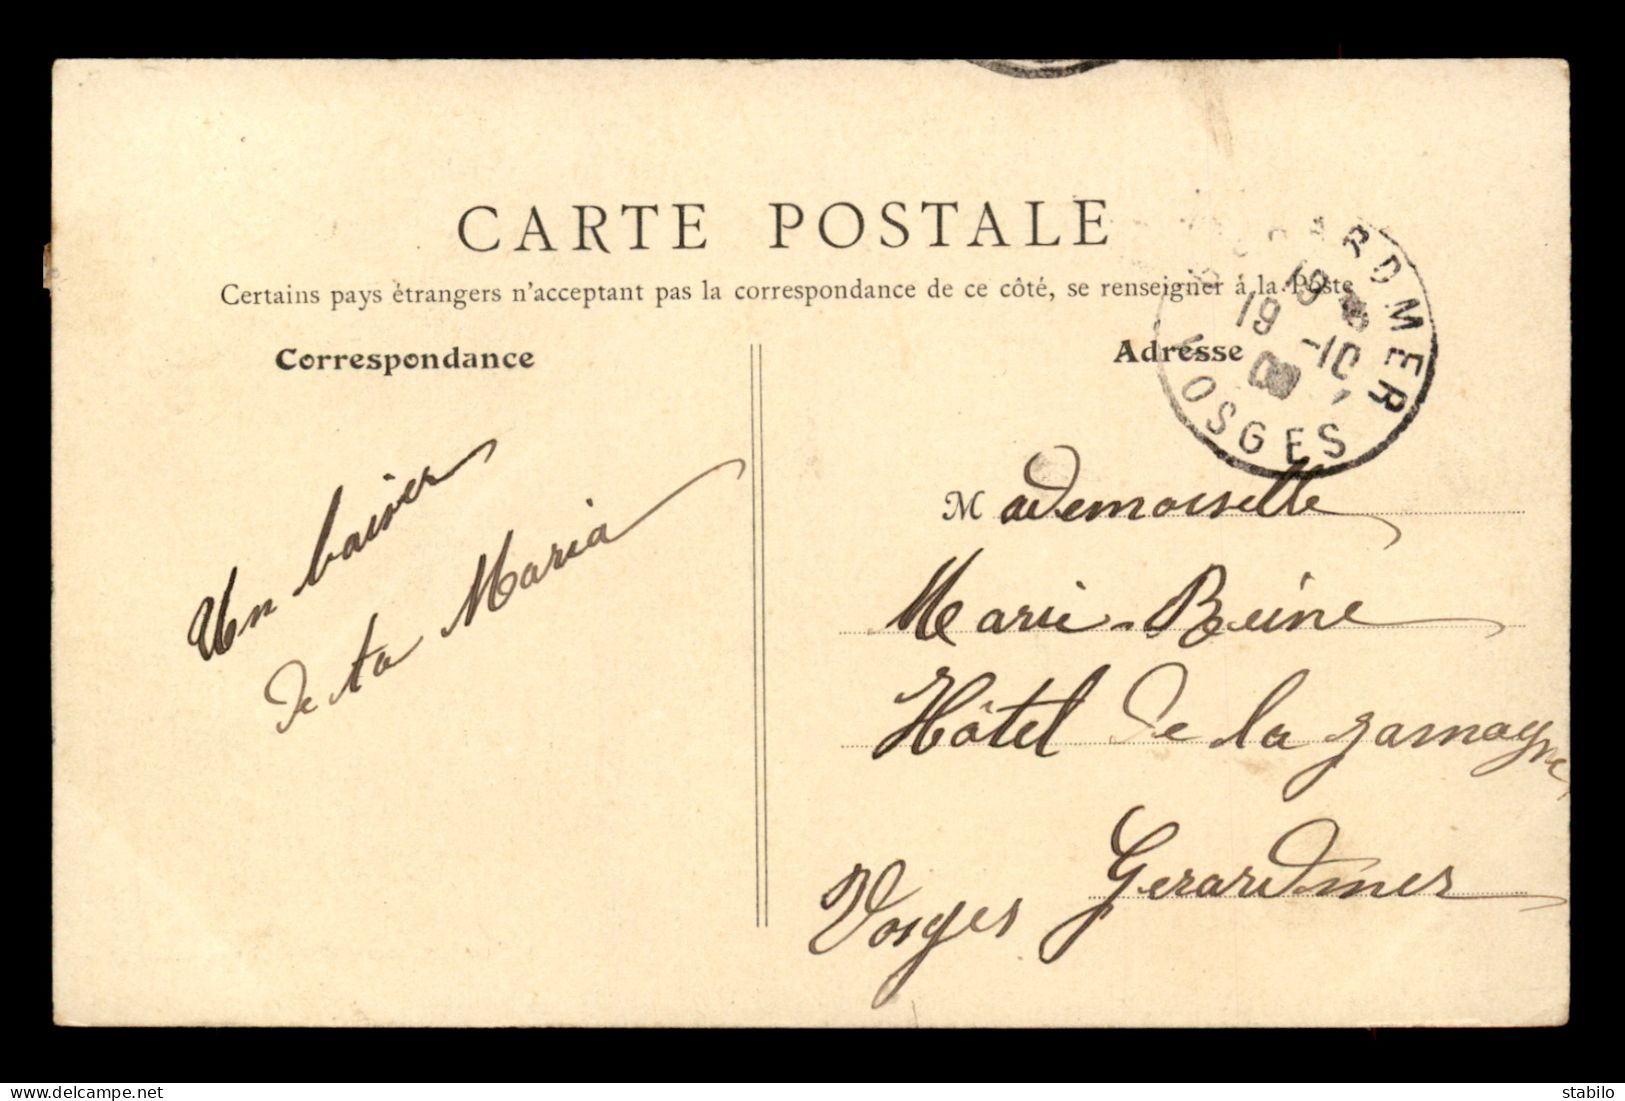 CARTE POSTALE
Certains pays étrangers n'acceptant pas la correspondance de ce côté, se renseigner à la Poste
Correspondance
Adresse
RDMER
19
19 -10
VOSGES
Un baiser
de ta Maria
Mademoiselle
Marie-Reine
Hôtel de la
Gerardmer
Vosges
delcampe.net
stabilo